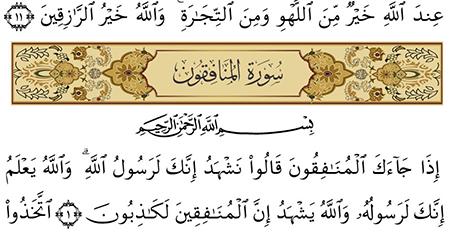 عِندَ ٱللَّهِ خَيْرٌ مِّنَ ٱللَّهْوِ وَمِنَ ٱلتِّجَٰرَةِ ۚ وَٱللَّهُ خَيْرُ ٱلرَّٰزِقِينَ ﴿١١﴾
سُورَةُ المُنَافِقُونَ
بِسْمِ ٱللَّهِ ٱلرَّحْمَٰنِ ٱلرَّحِيمِ
إِذَا جَآءَكَ ٱلْمُنَٰفِقُونَ قَالُوا۟ نَشْهَدُ إِنَّكَ لَرَسُولُ ٱللَّهِ ۗ وَٱللَّهُ يَعْلَمُ
إِنَّكَ لَرَسُولُهُۥ وَٱللَّهُ يَشْهَدُ إِنَّ ٱلْمُنَٰفِقِينَ لَكَٰذِبُونَ ﴿١﴾ ٱتَّخَذُوٓا۟